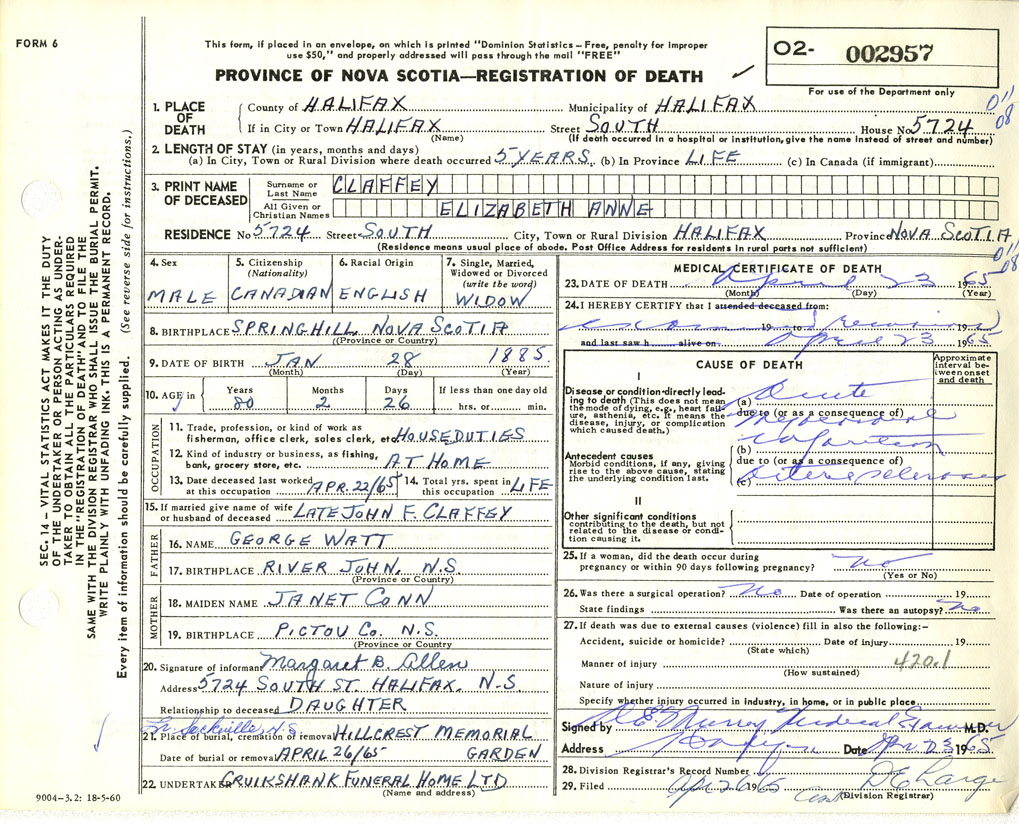 FORM 6
This form, if placed in an envelope, on which is printed "Dominion Statistics – Free, penalty for improper
use $50," and properly addressed will pass through the mail "FREE"
PROVINCE OF NOVA SCOTIA—REGISTRATION OF DEATH ✓
O2- 002957
For use of the Department only
011
08
1. PLACE OF DEATH
County of HALIFAX Municipality of HALIFAX
If in City or Town HALIFAX Street SOUTH House No 5724
(Name) (If death occurred in a hospital or institution, give the name instead of street and number)
2. LENGTH OF STAY (in years, months and days)
(a) In City, Town or Rural Division where death occurred 5 YEARS. (b) In Province LIFE (c) In Canada (if immigrant)
3. PRINT NAME OF DECEASED
Surname or Last Name CLAFFEY
All Given or Christian Names ELIZABETH ANNE
RESIDENCE No 5724 Street SOUTH City, Town or Rural Division HALIFAX Province NOVA SCOTIA
(Residence means usual place of abode. Post Office Address for residents in rural parts not sufficient)
011
08
4. Sex
MALE
5. Citizenship
(Nationality)
CANADIAN
6. Racial Origin
ENGLISH
7. Single, Married,
Widowed or Divorced
(write the word)
WIDOW
8. BIRTHPLACE SPRINGHILL NOVA SCOTIA
(Province or Country)
9. DATE OF BIRTH JAN 28 1885.
(Month) (Day) (Year)
10. AGE in
Years Months Days If less than one day old
80 2 26 hrs. or min.
OCCUPATION
11. Trade, profession, or kind of work as
fisherman, office clerk, sales clerk, etc HOUSEDUTIES
12. Kind of industry or business, as fishing,
bank, grocery store, etc. AT HOME
13. Date deceased last worked
at this occupation APR. 22/65
14. Total yrs. spent in
this occupation LIFE
15. If married give name of wife
or husband of deceased LATE JOHN F. CLAFFEY
FATHER
16. NAME GEORGE WATT
17. BIRTHPLACE RIVER JOHN. N.S
(Province or Country)
MOTHER
18. MAIDEN NAME JANET CONN
19. BIRTHPLACE PICTOU CO. N.S.
(Province or Country)
20. Signature of informant Margaret B. Allen
Address 5724 SOUTH ST. HALIFAX. N-S.
Relationship to deceased DAUGHTER
Sackville, N.S.
21. Place of burial, cremation or removal HILLCREST MEMORIAL
GARDEN
Date of burial or removal APRIL 26/65
22. UNDERTAKER CRUIKSHANK FUNERAL HOME LTD
(Name and address)
MEDICAL CERTIFICATE OF DEATH
23. DATE OF DEATH April 23 1965
(Month) (Day) (Year)
24. I HEREBY CERTIFY that I attended deceased from:
19 to 19
and last saw h alive on April 23 1965
CAUSE OF DEATH
Approximate interval between onset and death
I
Disease or condition directly leading to death (This does not mean the mode of dying, e.g., heart failure, asthenia, etc. It means the disease, injury, or complication which caused death.)
(a) Acute
due to (or as a consequence of)
myocardial
infarction
(b)
Antecedent causes
Morbid conditions, if any, giving rise to the above cause, stating the underlying condition last.
due to (or as a consequence of)
Arterio sclerosis
(c)
II
Other significant conditions
contributing to the death, but not related to the disease or condition causing it.
25. If a woman, did the death occur during
pregnancy or within 90 days following pregnancy? No
(Yes or No)
26. Was there a surgical operation? No Date of operation 19
State findings Was there an autopsy? No
27. If death was due to external causes (violence) fill in also the following:-
Accident, suicide or homicide? Date of injury 19
(State which)
Manner of injury 420.1
(How sustained)
Nature of injury
Specify whether injury occurred in Industry, in home, or in public place
Signed by Murray Medical Examiner M.D.
Address Halifax Date Apr 23 1965
28. Division Registrar's Record Number
29. Filed Apr 26 1965
(Division Registrar)
SEC. 14 – VITAL STATISTICS ACT MAKES IT THE DUTY
OF THE UNDERTAKER OR PERSON ACTING AS UNDER-
TAKER TO OBTAIN ALL THE PARTICULARS REQUIRED
IN THE "REGISTRATION OF DEATH" AND TO FILE THE
SAME WITH THE DIVISION REGISTRAR WHO SHALL ISSUE THE BURIAL PERMIT.
WRITE PLAINLY WITH UNFADING INK. THIS IS A PERMANENT RECORD.
Every item of information should be carefully supplied. (See reverse side for instructions.)
9004-3.2: 18-5-60